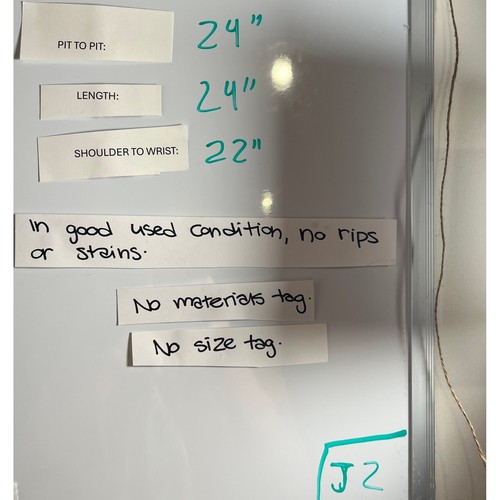 PIT TO PIT: 24"
LENGTH: 24"
SHOULDER TO WRIST: 22"
In good used condition, no rips
or stains.
No materials tag.
No size tag.
J2